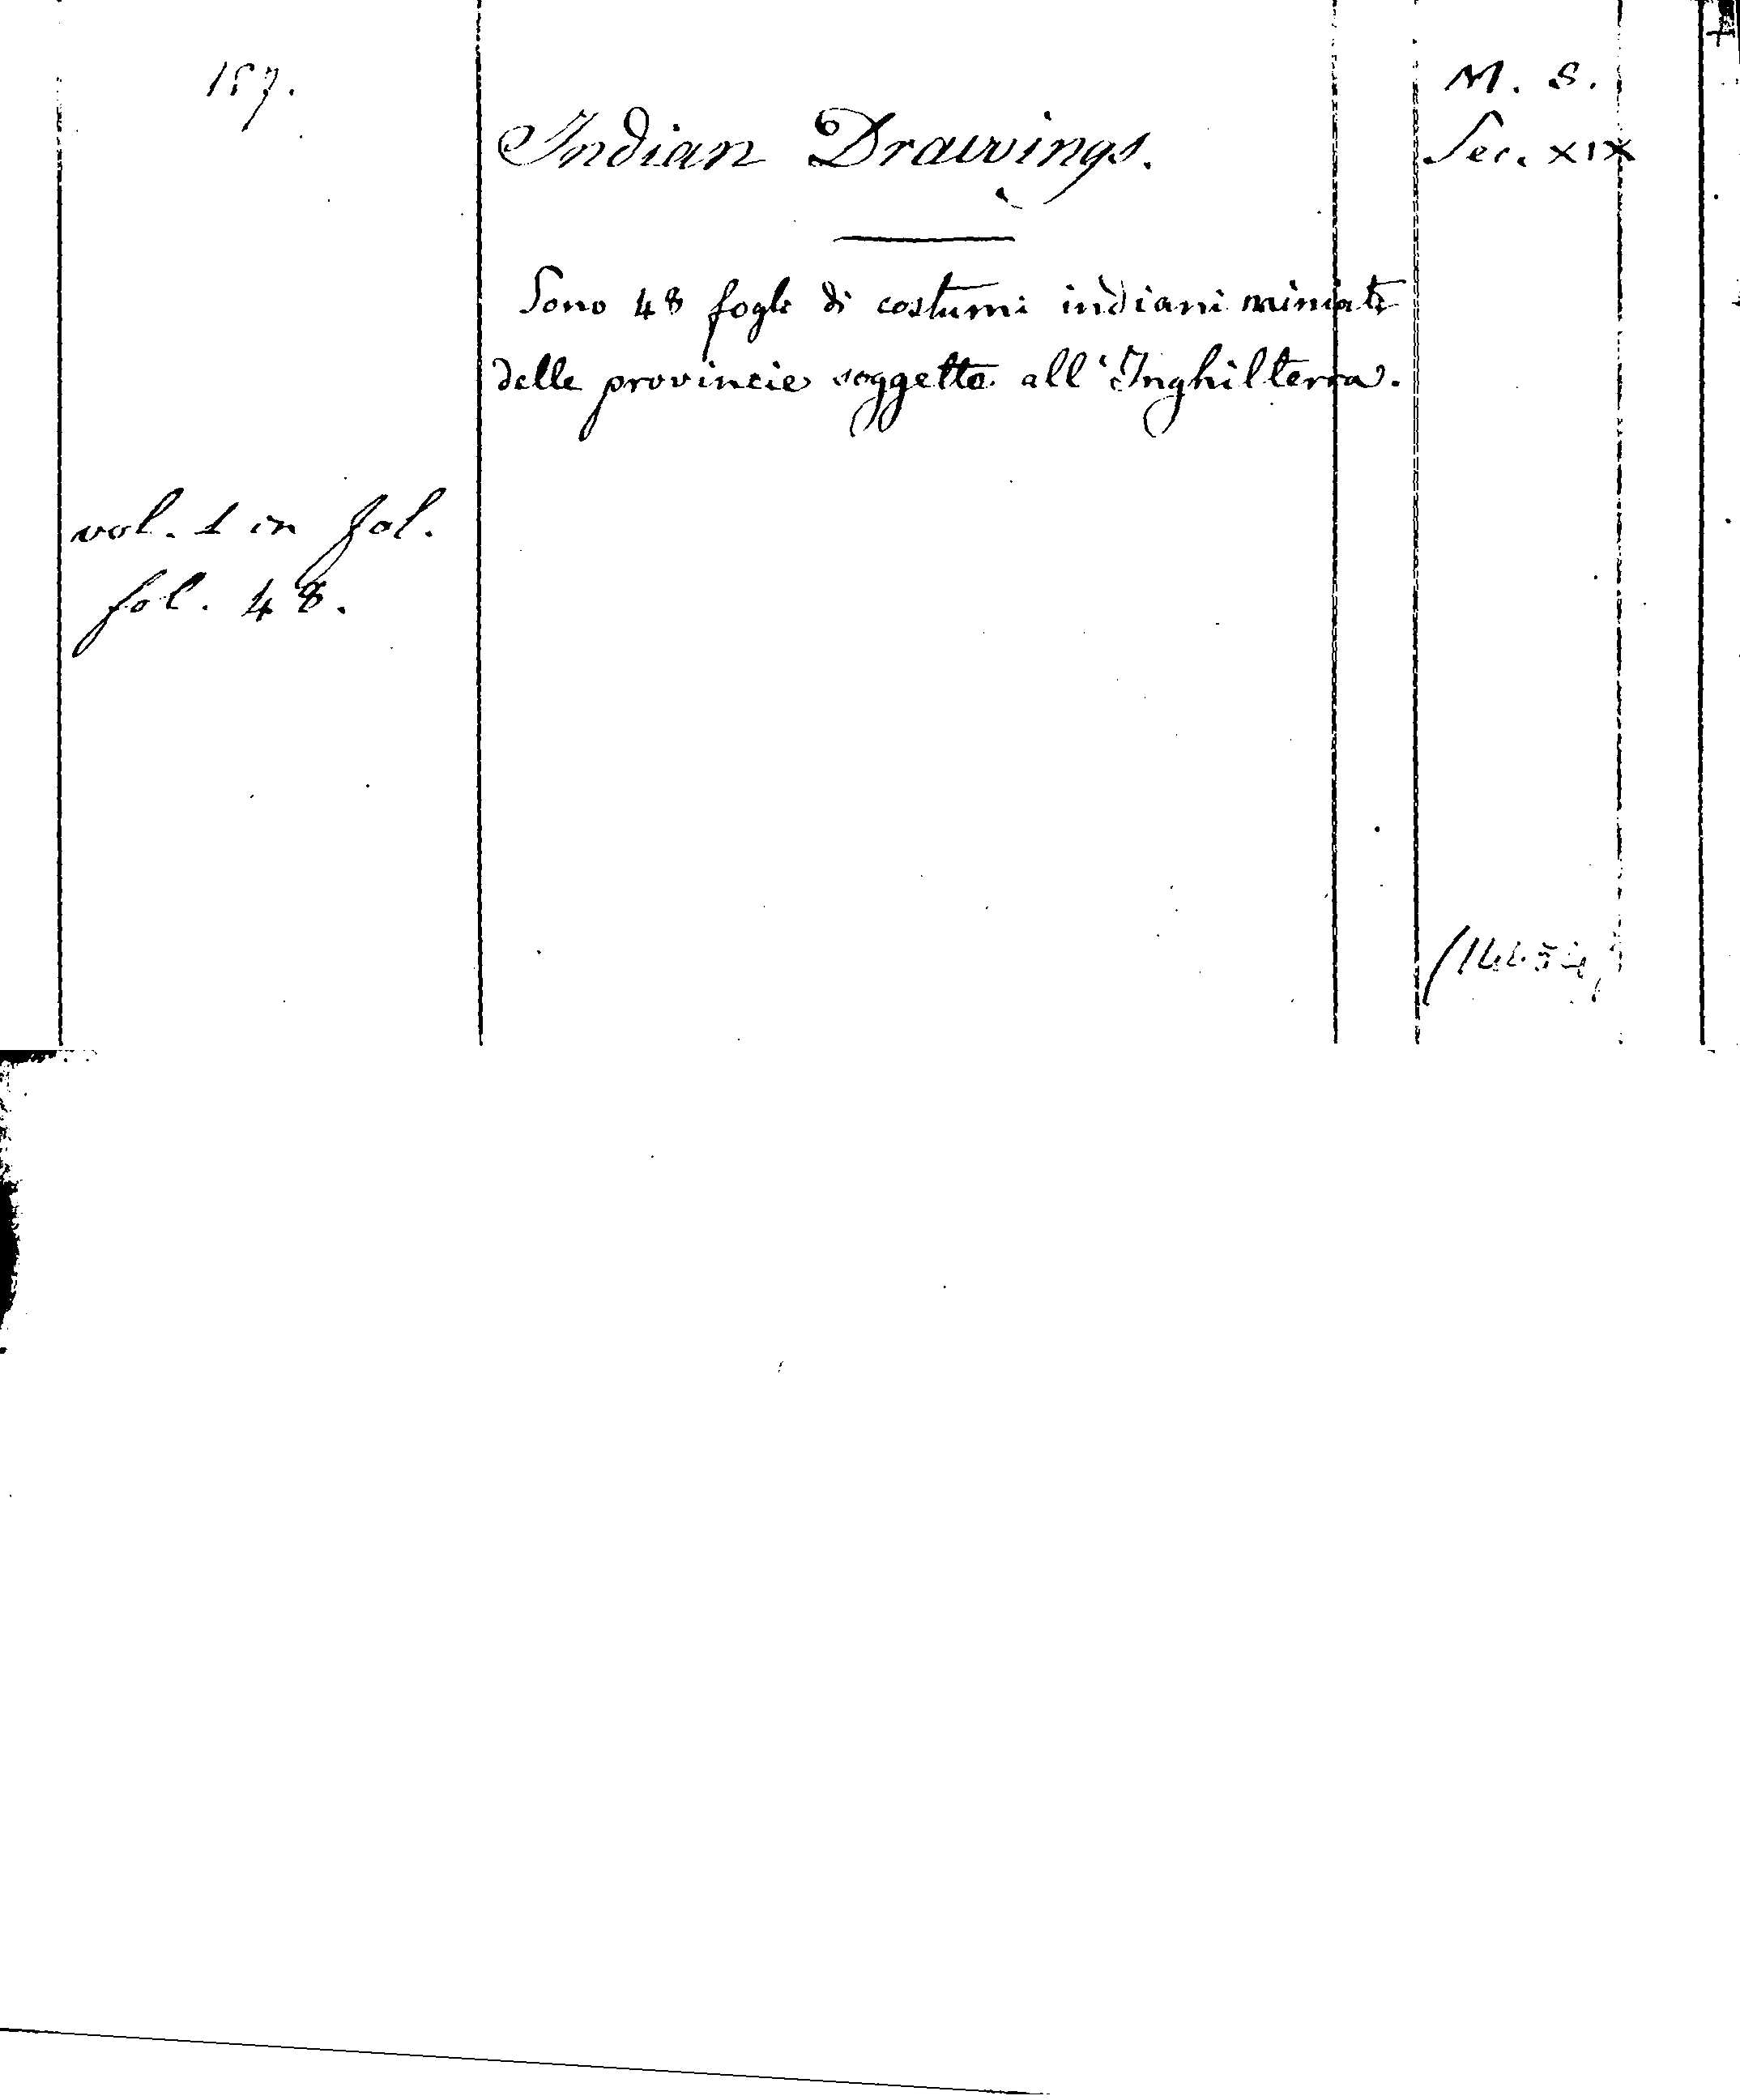 157.
Indian Drawings.
M. S.
Sec. XIX
Sono 48 fogli di costumi indiani miniati
delle provincie soggette all'Inghilterra.
vol. 1 in fol.
fol. 48.